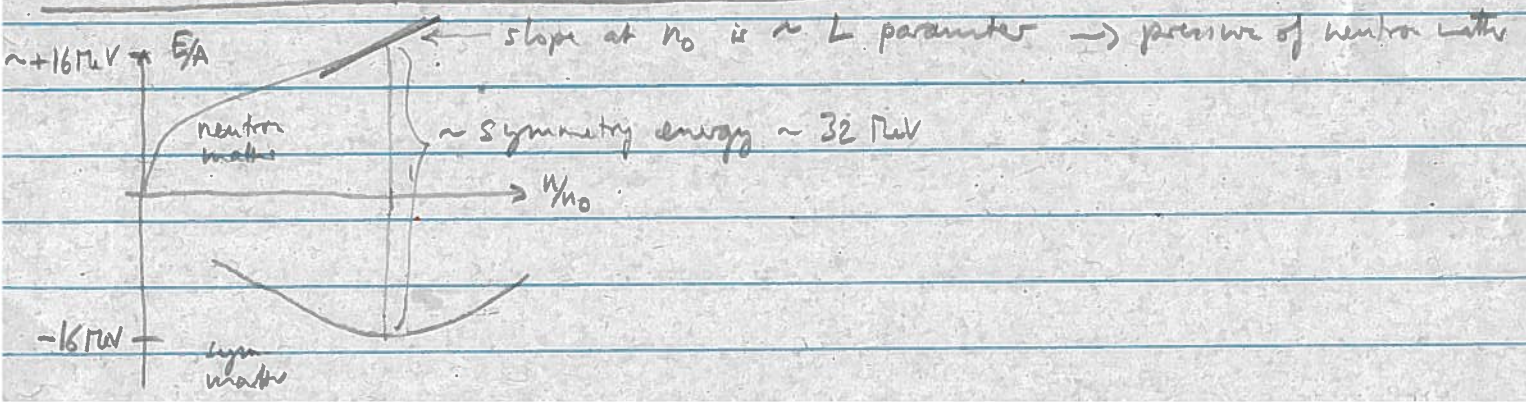 ~+16 MeV E/A ← slope at n₀ is ~ L parameter → pressure of neutron matter
neutron
matter
~ symmetry energy ~ 32 MeV
n/n₀
-16 MeV
sym
matter